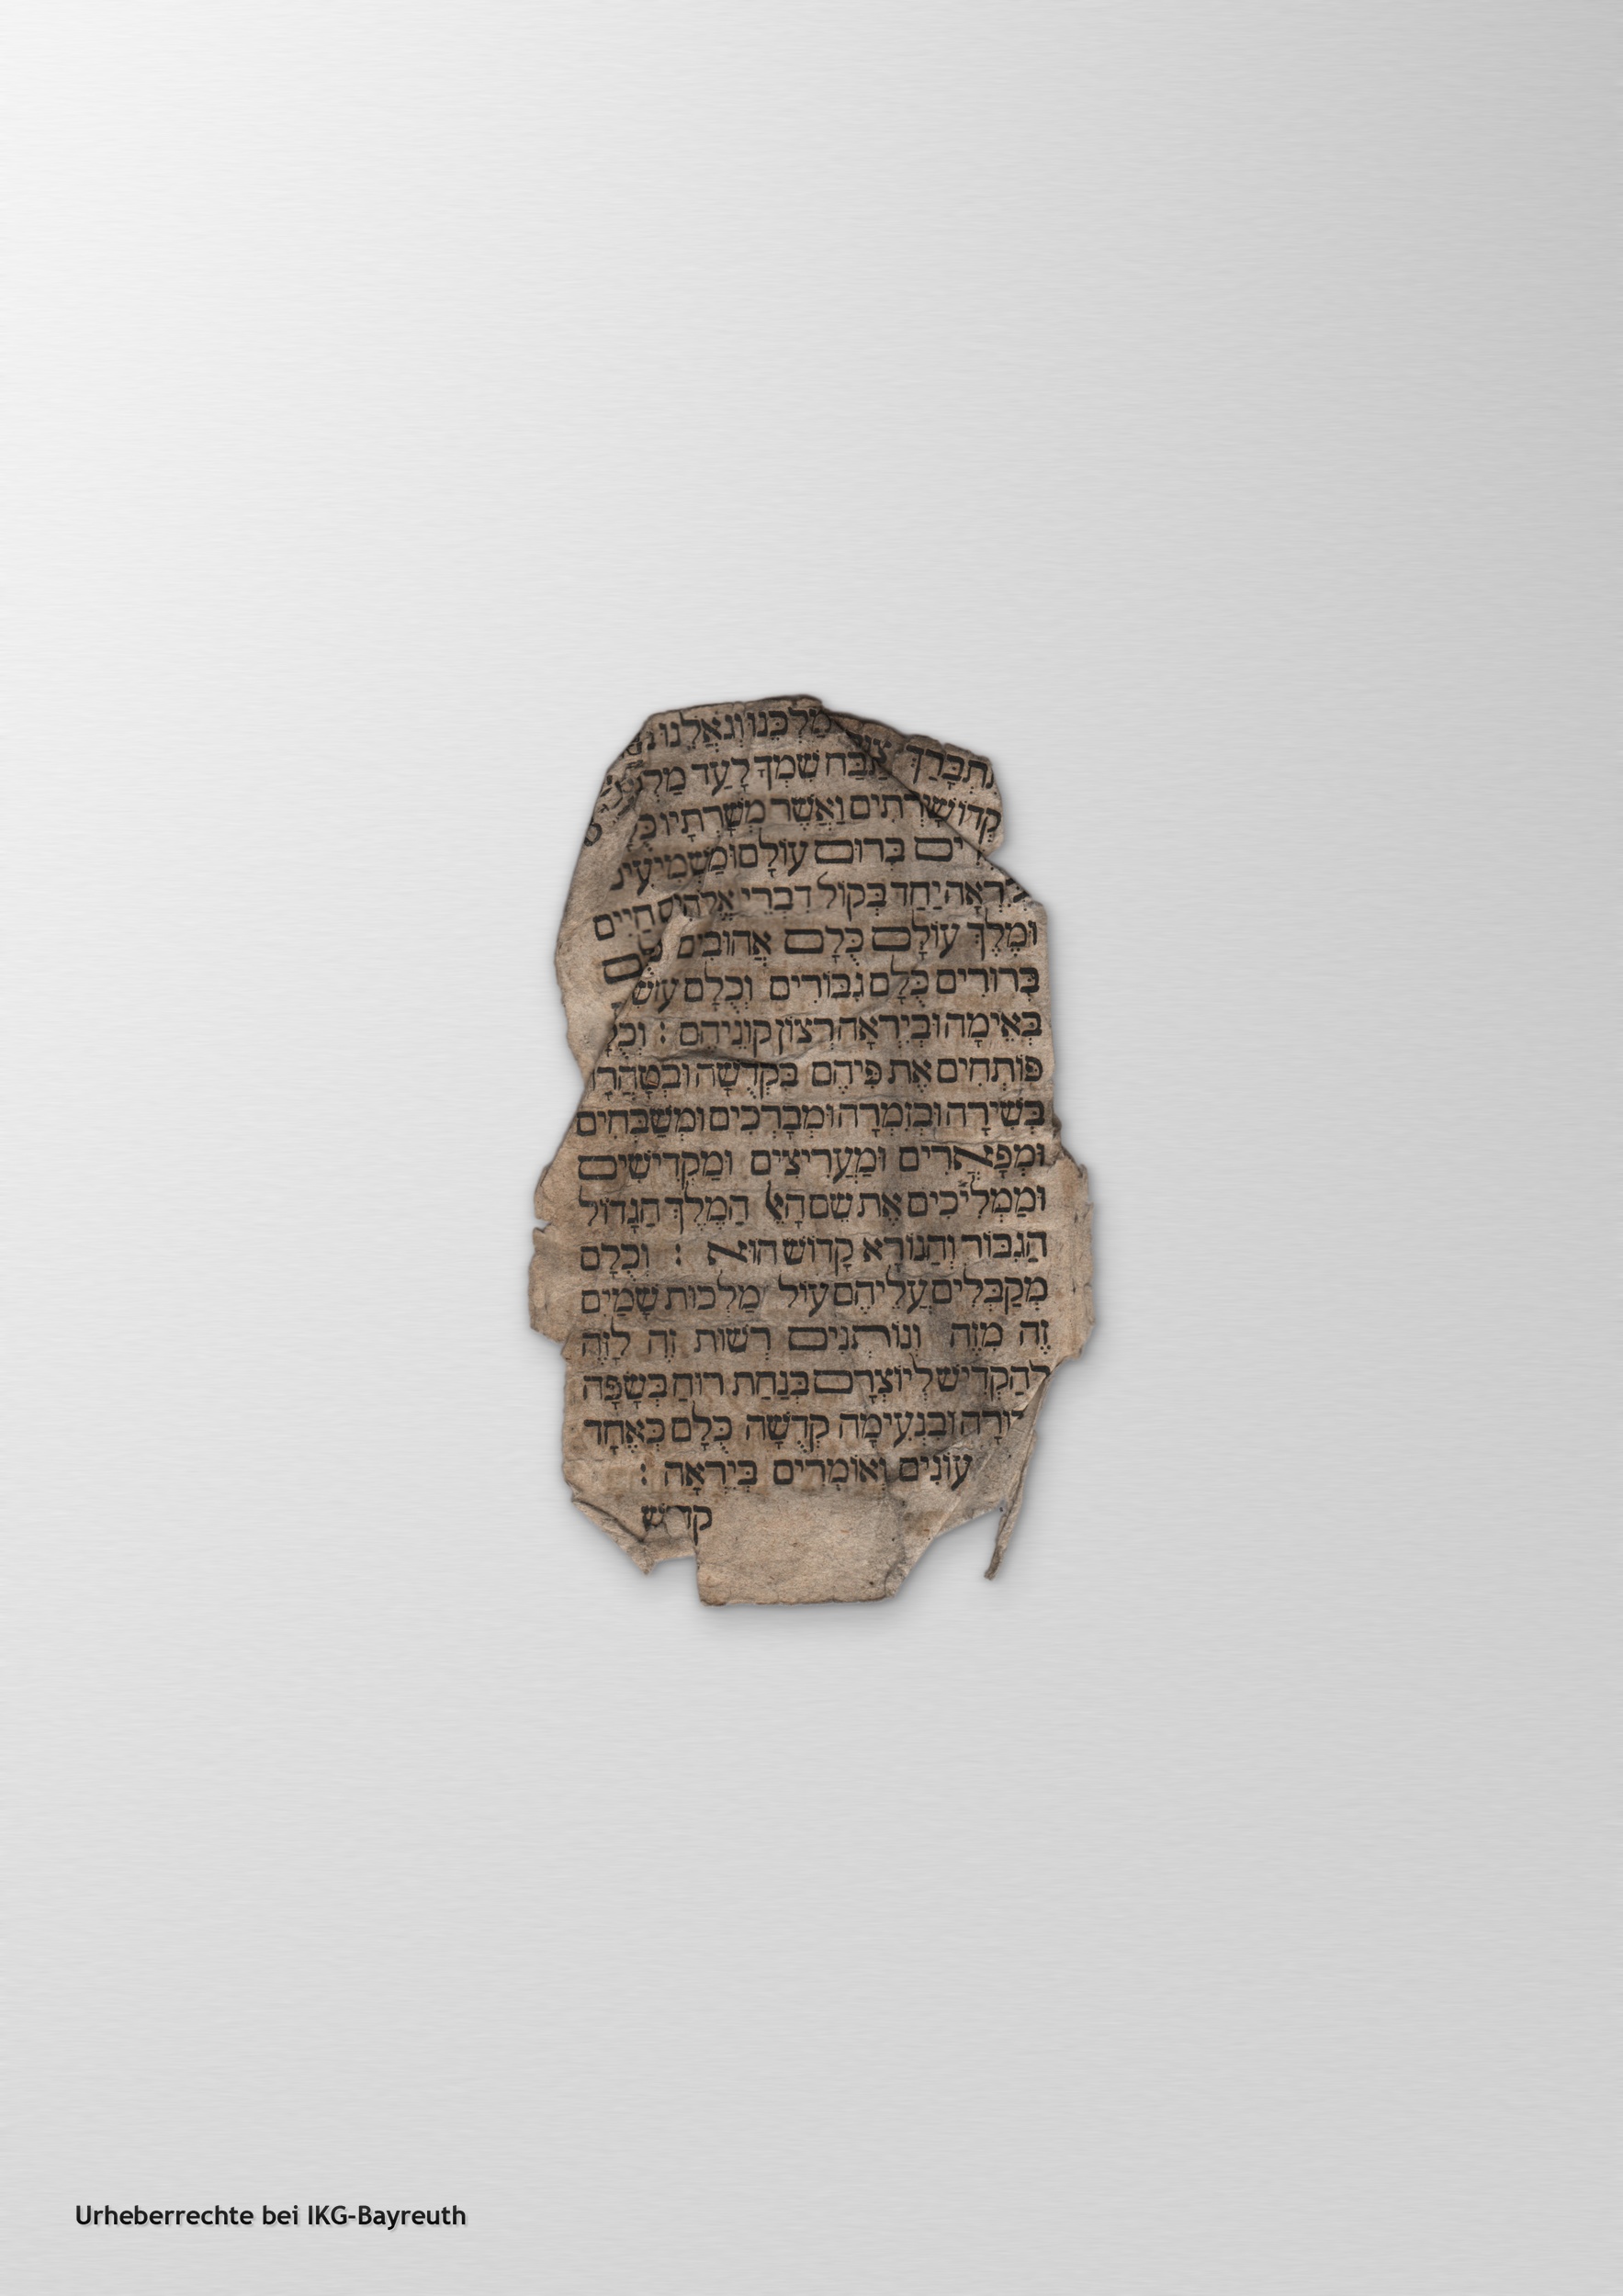 מַלְכֵּנוּ וְגֹאֲלֵנוּ
תִתְבָּרַךְ
יִשְׁתַּבַּח שִׁמְךָ לָעַד מַלְכֵּנוּ
קְדוֹשִׁים
מְשָׁרְתִים וַאֲשֶׁר מְשָׁרְתָיו כֻּלָּ
בְּרוּם עוֹלָם וּמַשְׁמִיעִי
בְּיִרְאָה יַחַד בְּקוֹל דִבְרֵי אֱלֹהִים חַיִים
וּמֶלֶךְ עוֹלָם כֻּלָם אֲהוּבִים
בְּרוּרִים כֻּלָם גִבּוֹרִים וְכֻלָם עוֹשׂ
בְּאֵימָה וּבְיִרְאָה רְצוֹן קוֹנֵיהֶם : וְכֻלָ
פּוֹתְחִים אֶת פִּיהֶם בִּקְדֻשָׁה וּבְטָהֳרָ
בְּשִׁירָה וּבְזִמְרָה וּמְבָרְכִים וּמְשַׁבְּחִים
וּמְפָאֲרִים וּמַעֲרִיצִים וּמַקְדִישִׁים
וּמַמְלִיכִים אֶת שֵׁם הָאֵל הַמֶלֶךְ הַגָדוֹל
הַגִבּוֹר וְהַנוֹרָא קָדוֹשׁ הוּא : וְכֻלָם
מְקַבְּלִים עֲלֵיהֶם עוֹל מַלְכוּת שָׁמַיִם
זֶה מִזֶה וְנוֹתְנִים רְשׁוּת זֶה לָזֶה
לְהַקְדִישׁ לְיוֹצְרָם בְּנַחַת רוּחַ בְּשָׂפָּה
בְרוּרָה וּבִנְעִימָה קְדֻשָׁה כֻּלָם כְּאֶחָד
עוֹנִים וְאוֹמְרִים בְּיִרְאָה :
קדוש
Urheberrechte bei IKG-Bayreuth